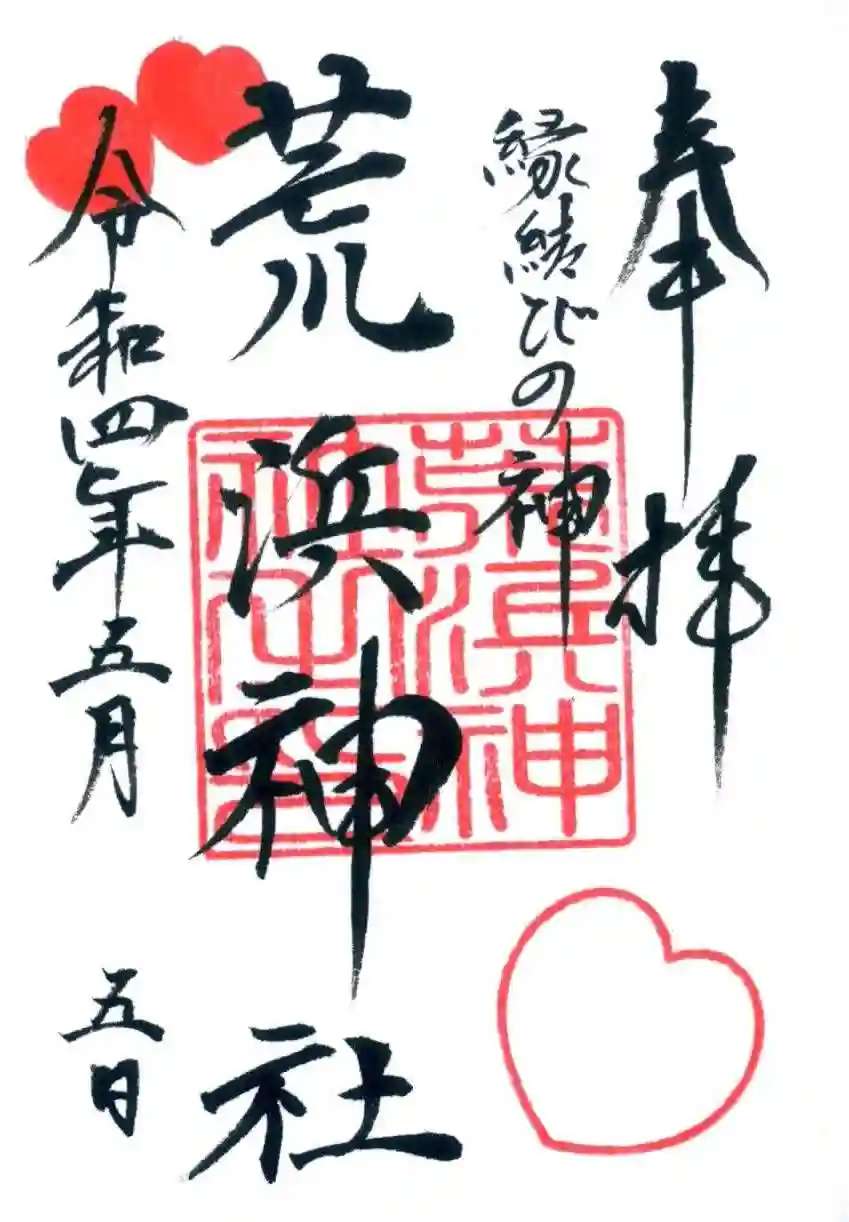 奉拝
縁結びの神
荒浜神社
荒濱神社之印
令和四年五月五日